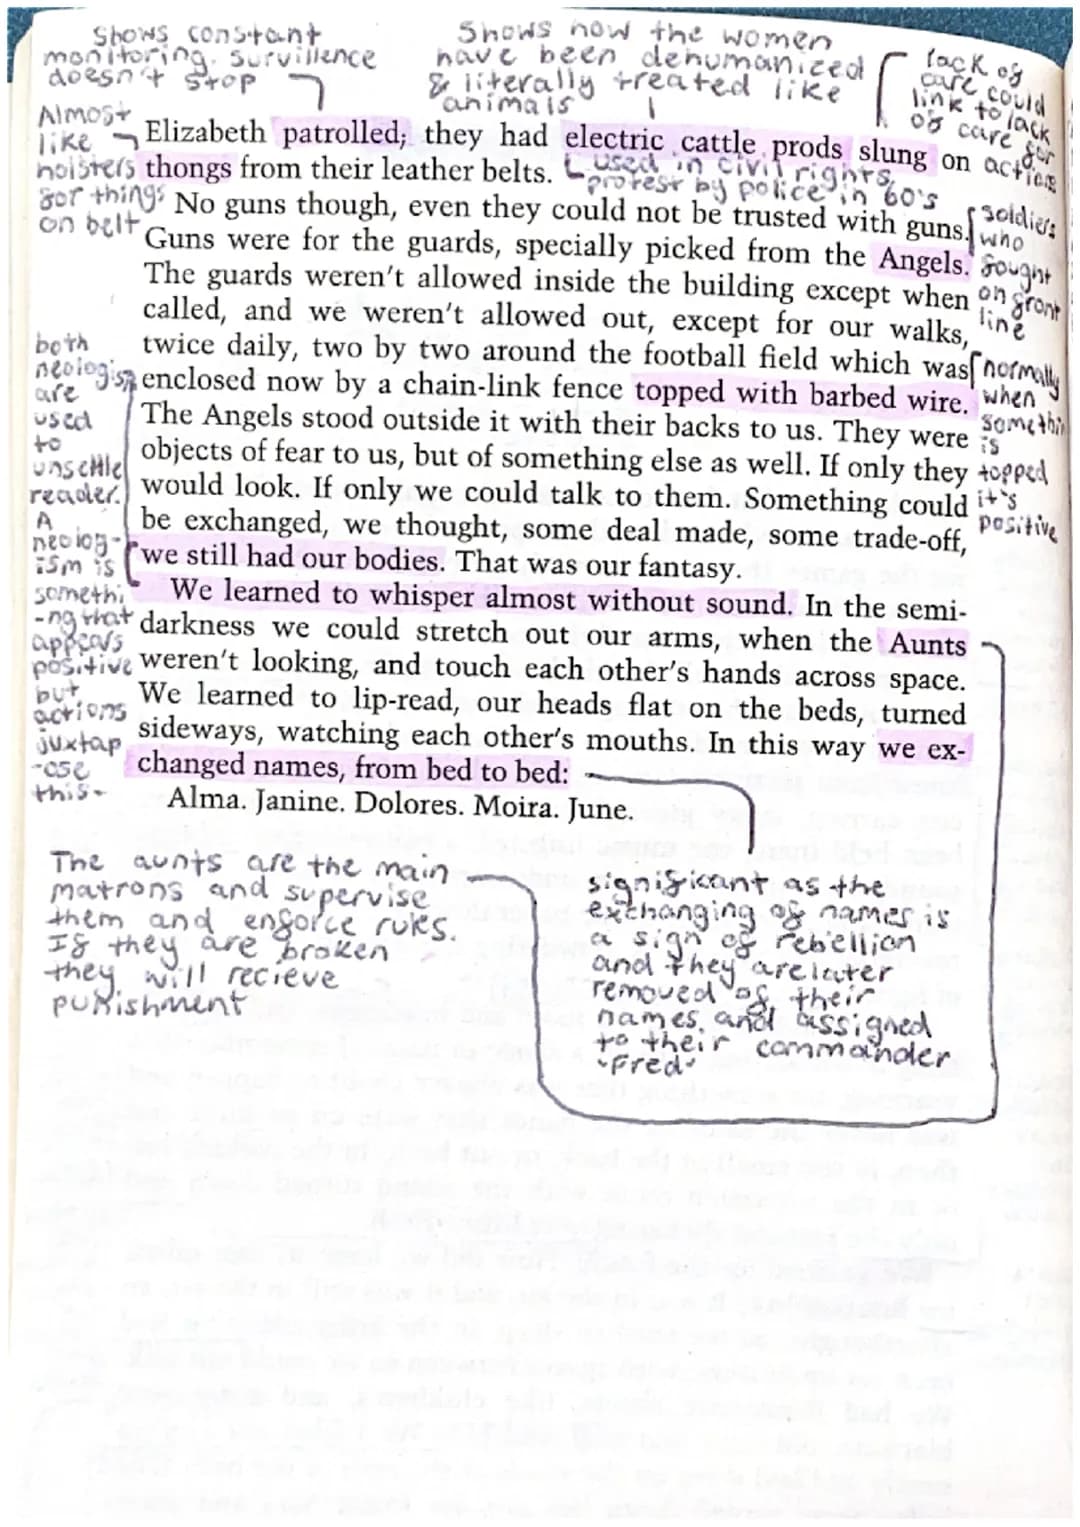 Shows constant
monitoring. Survillence
doesn't stop
Shows how the women
have been dehumanized
& literally treated like
animals
lack of
care could
link to lack
of care for
actions
Almost
like
holsters
for things
on belt
Elizabeth patrolled; they had electric cattle prods slung on
thongs from their leather belts.
used in civil rights
protest by police in 60's
No guns though, even they could not be trusted with guns.
Guns were for the guards, specially picked from the Angels.
The guards weren't allowed inside the building except when
called, and we weren't allowed out, except for our walks,
twice daily, two by two around the football field which was
enclosed now by a chain-link fence topped with barbed wire.
The Angels stood outside it with their backs to us. They were
objects of fear to us, but of something else as well. If only they
would look. If only we could talk to them. Something could
be exchanged, we thought, some deal made, some trade-off,
we still had our bodies. That was our fantasy.
We learned to whisper almost without sound. In the semi-
darkness we could stretch out our arms, when the Aunts
weren't looking, and touch each other's hands across space.
We learned to lip-read, our heads flat on the beds, turned
sideways, watching each other's mouths. In this way we ex-
changed names, from bed to bed:
Alma. Janine. Dolores. Moira. June.
soldiers
who
fought
on front
line
normally
when
somethin
is
topped
it's
positive
both
neologism
are
used
to
unsettle
reader.
A
neolog-
ism is
somethi
-ng that
appears
positive
but
actions
juxtap
-ose
this-
The aunts are the main
matrons and supervise
them and enforce rules.
If they are broken
they will recieve
punishment
significant as the
exchanging of names is
a sign of rebellion
and they are later
removed of their
names, and assigned
to their commander
-Fred-